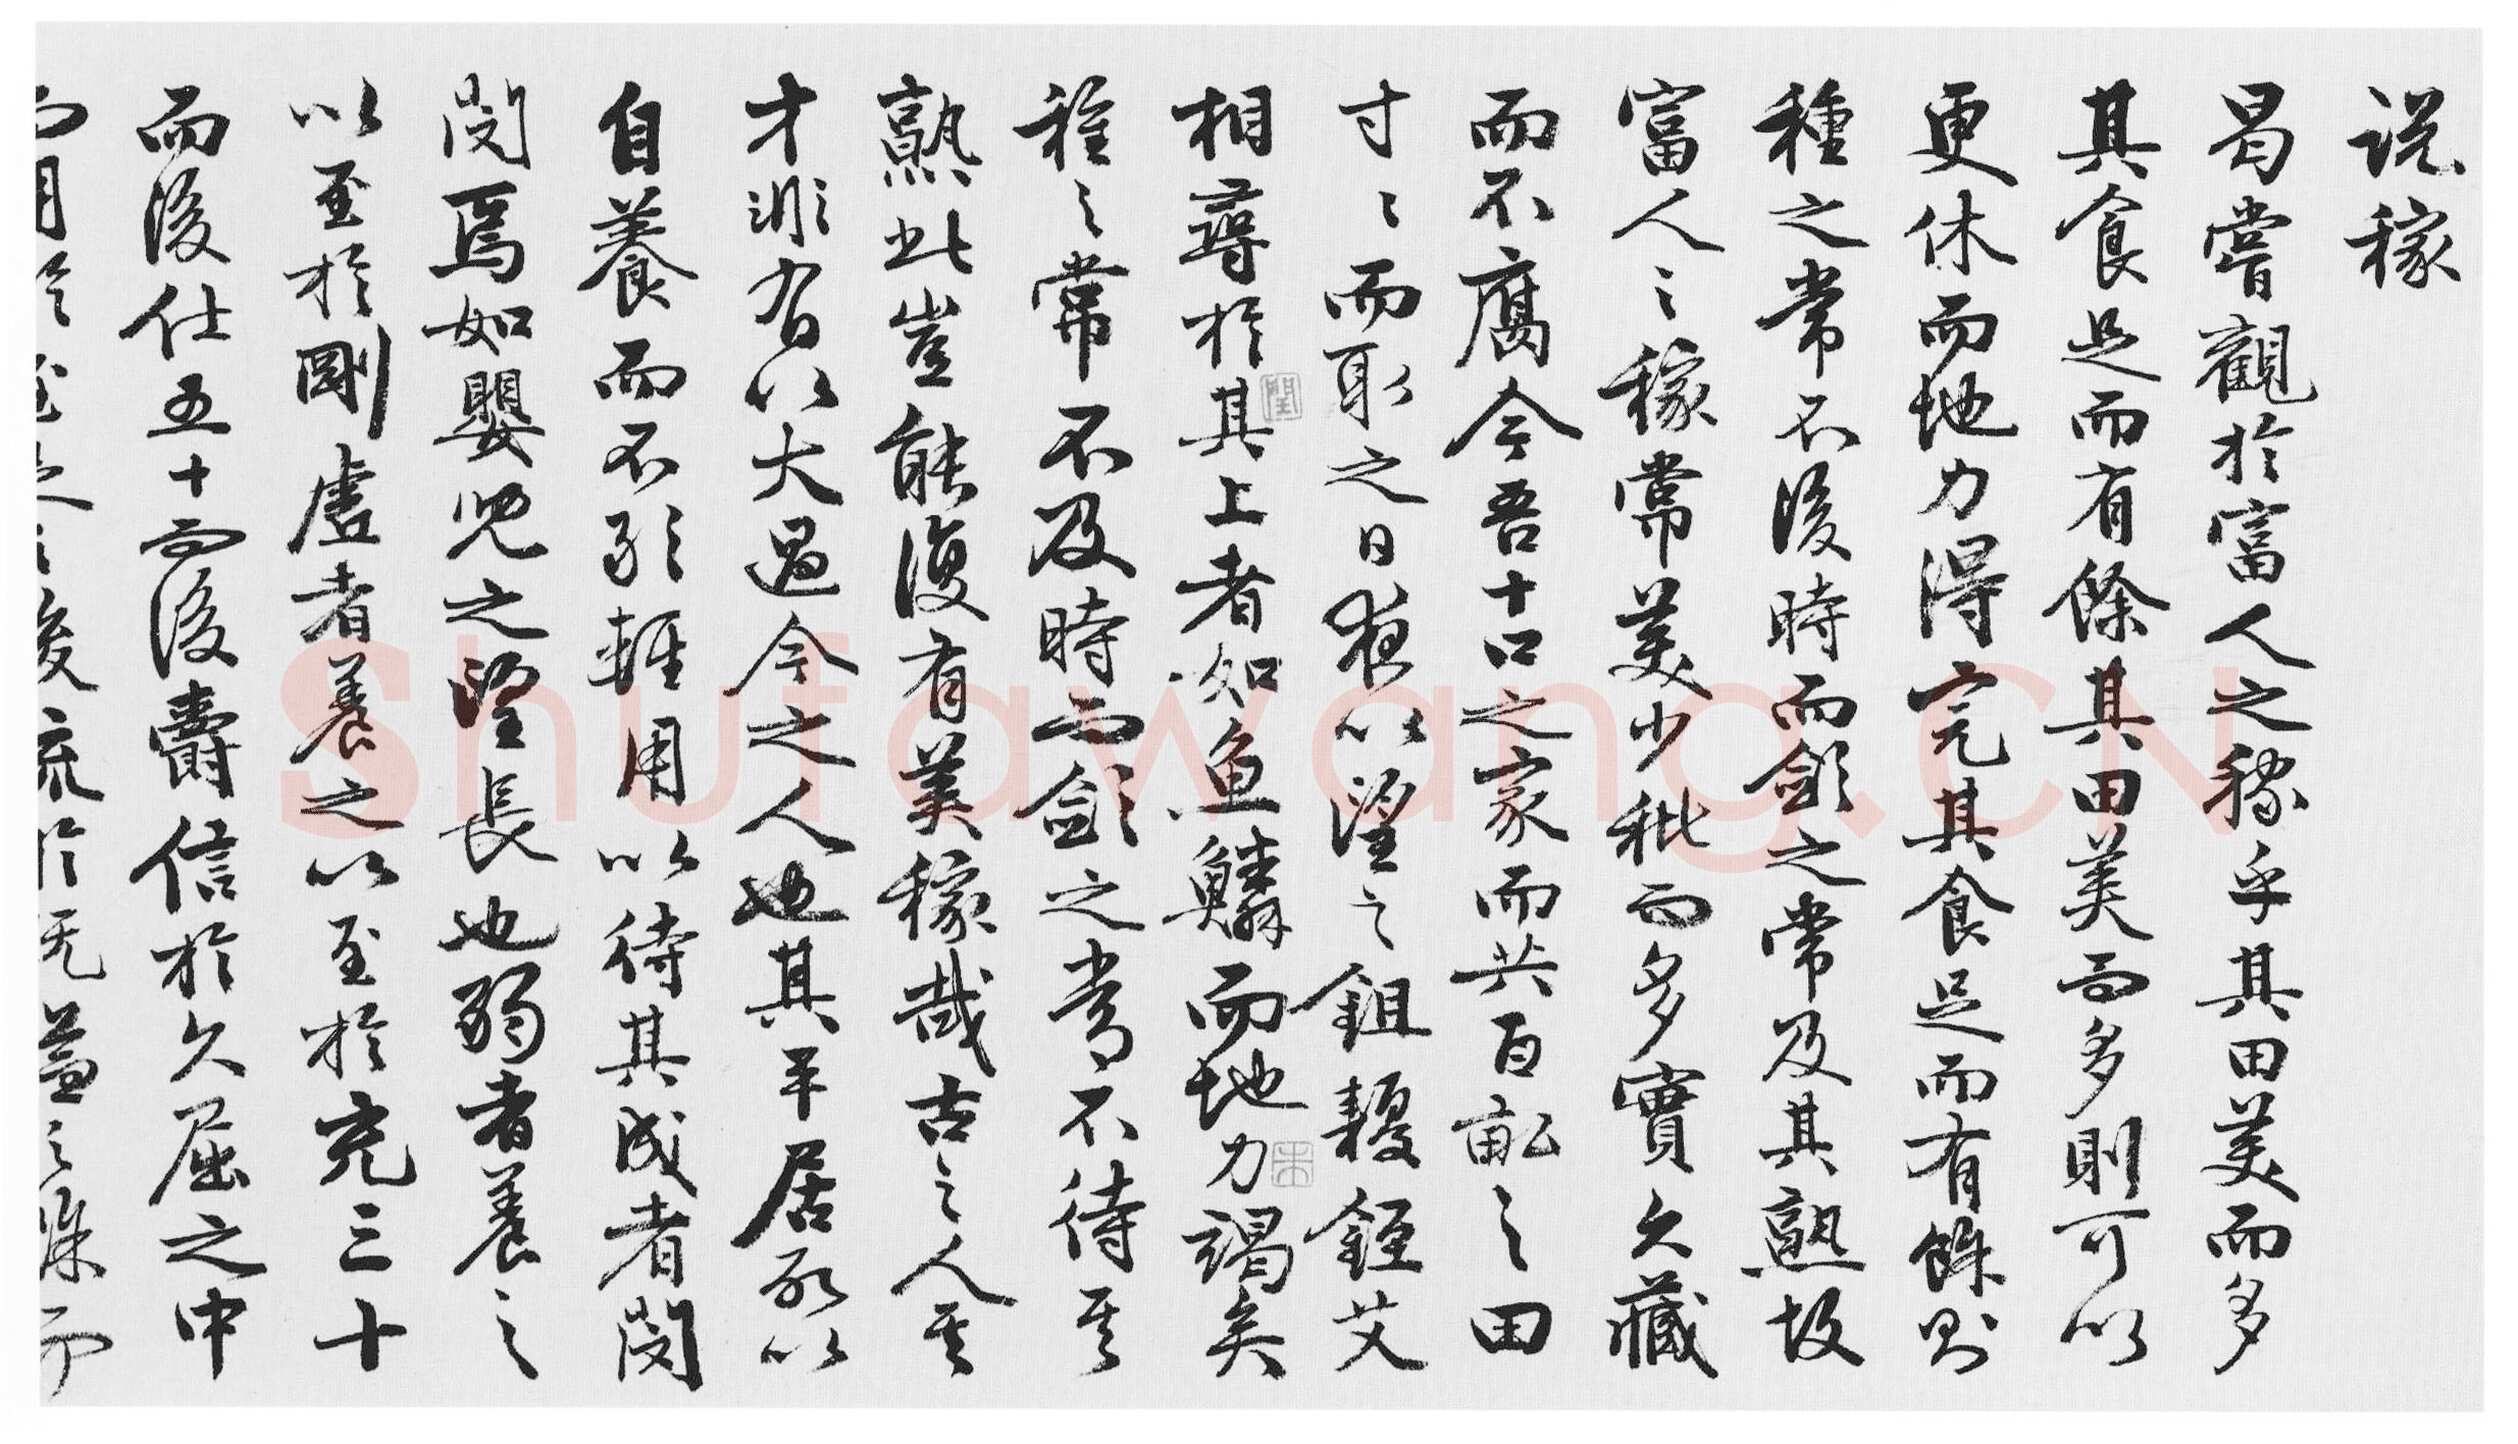 說稼
曷嘗觀於富人之稼乎其田美而多
其食足而有餘其田美而多則可以
更休而地力得完其食足而有餘則
種之常不後時而斂之常及其熟故
富人之稼常美少秕而多實久藏
而不腐今吾十口之家而共百畝之田
寸寸而取之日夜以望之鉏耰銍艾
相尋於其上者如魚鱗而地力竭矣
種之常不及時而斂之常不待其
熟此豈能復有美稼哉古之人其
才非有以大過今之人也其平居所以
自養而不敢輕用以待其成者閔
閔焉如嬰兒之望長也弱者養之
以至於剛虛者養之以至於充三十
而後仕五十而後爵信於久屈之中
而用於至足之後流於之餘而
Shufawang.CN